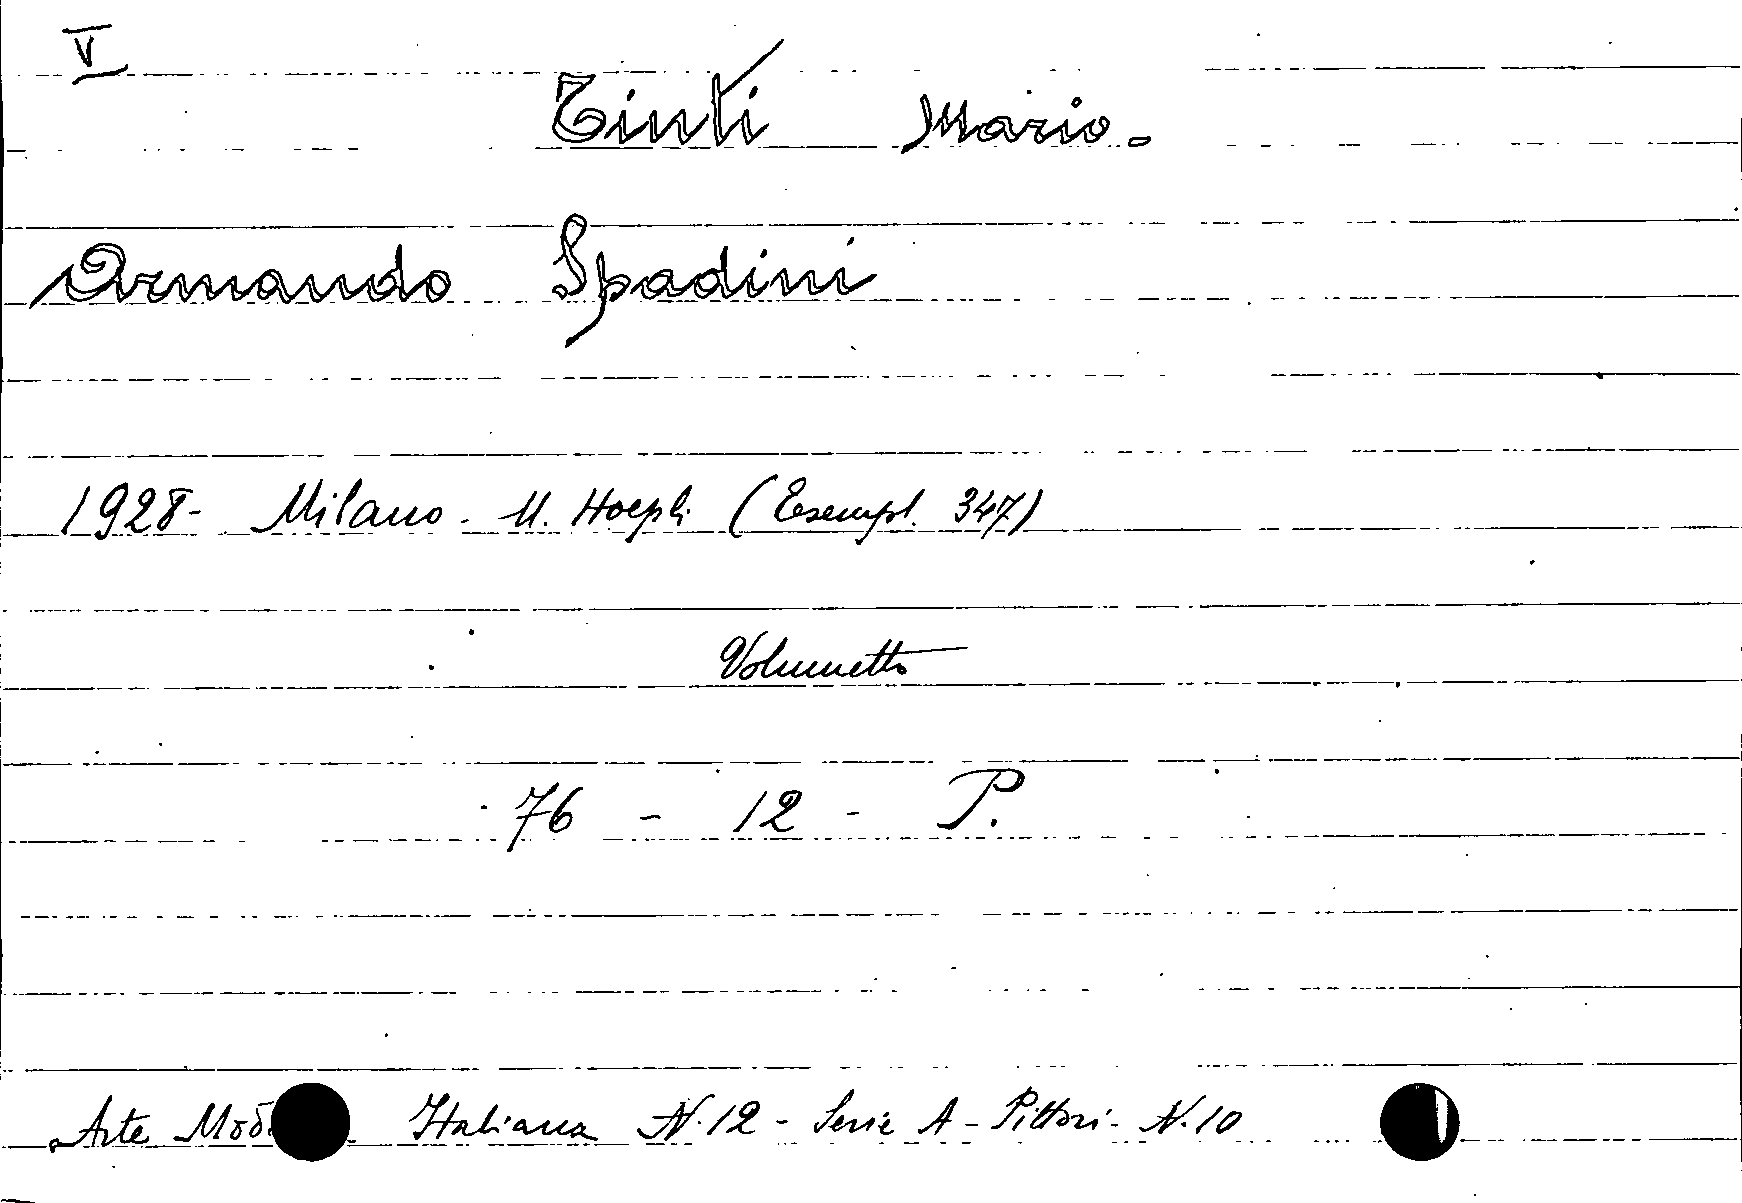 V
Tinti Mario.
Armando Spadini
1928 - Milano - U. Hoepli (Esempl. 347)
Volumetto
76 - 12 - P.
Arte Italiana N. 12 - Serie A - Pittori - N. 10